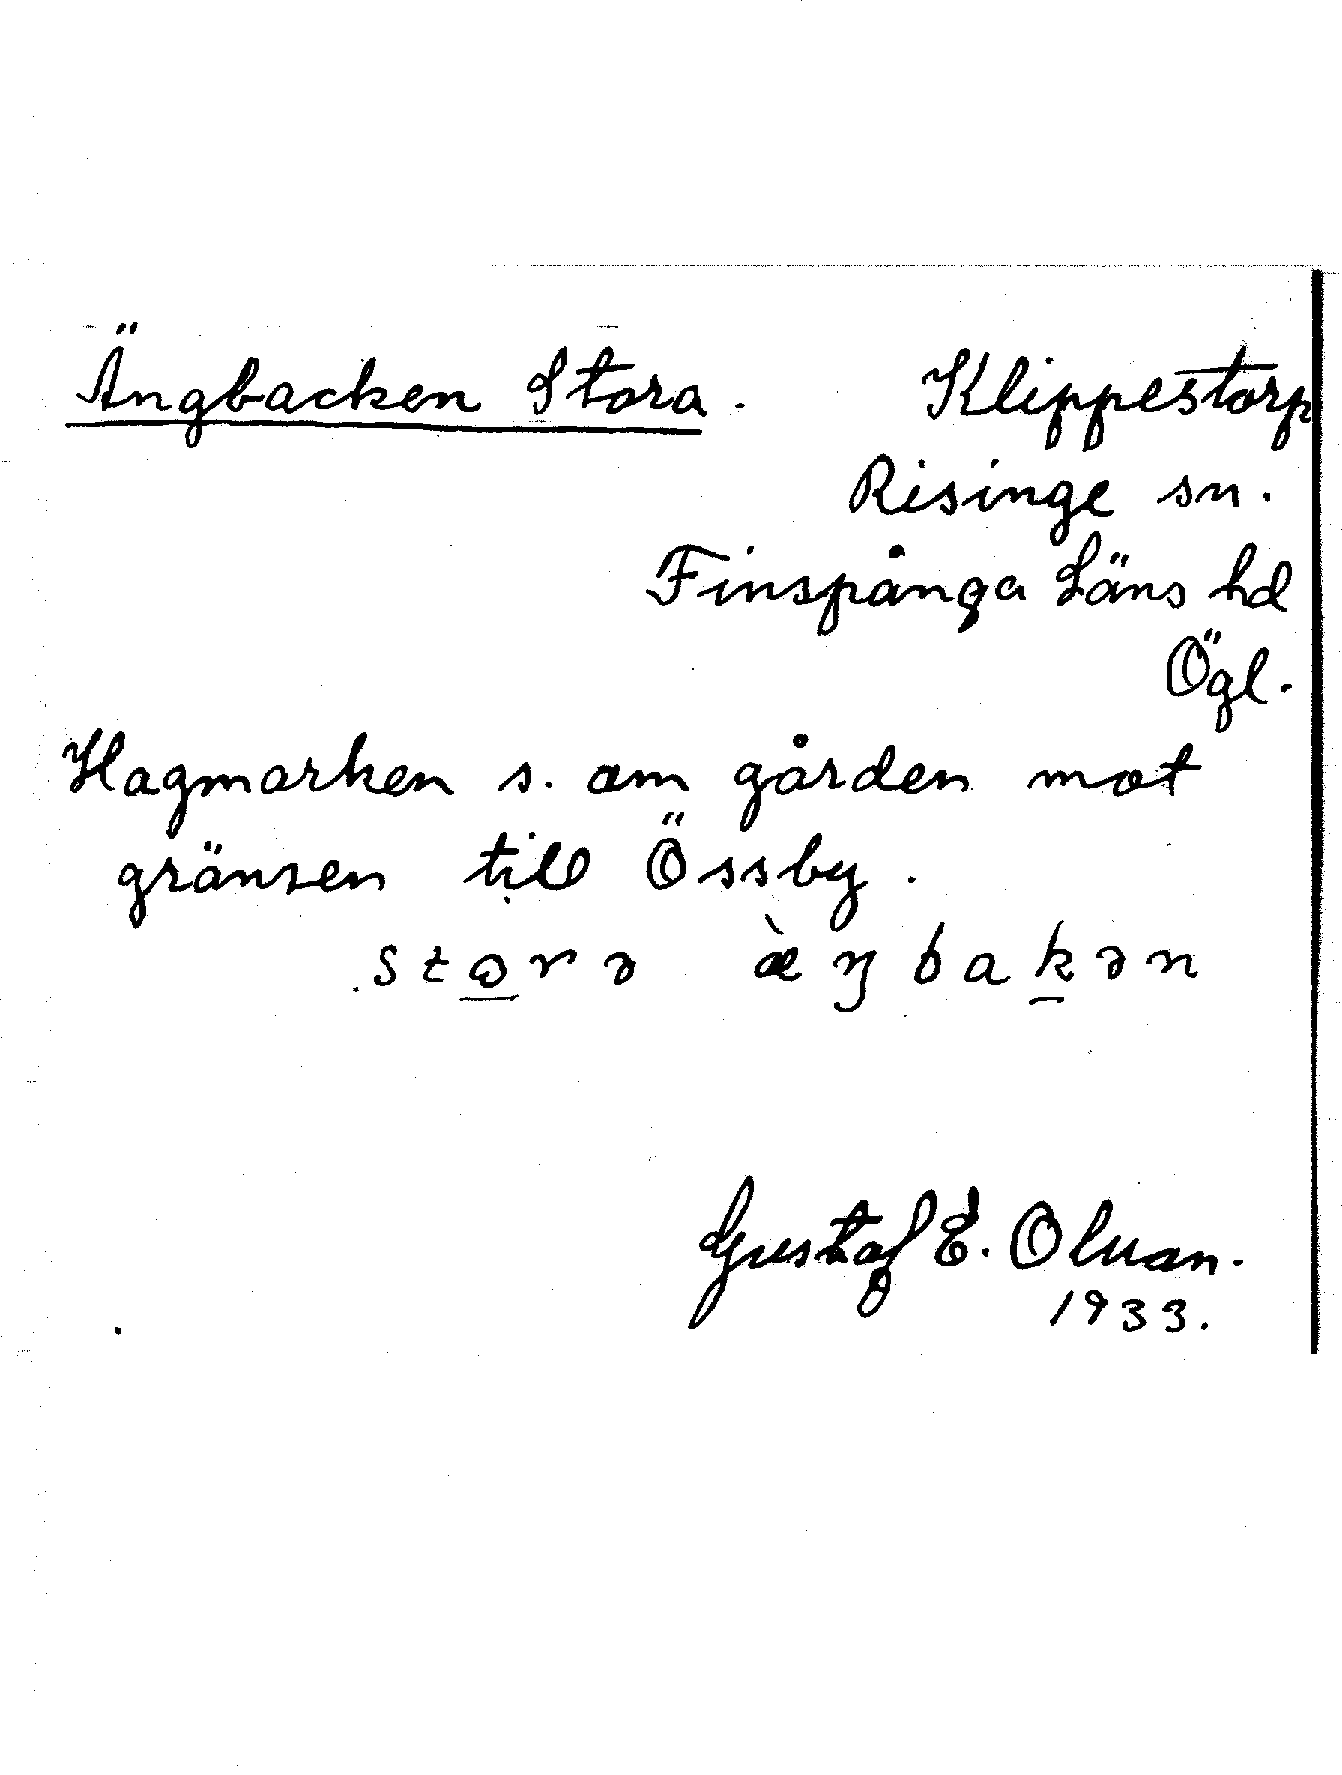 Ängbacken Stora. Klippestorp
Risinge sn.
Finspånga Läns hd
Ögl.
Hagmarken s. om gården mot
gränsen till Össby.
stɷrə æ̀ŋbakən
Gustaf E. Oluan.
1933.